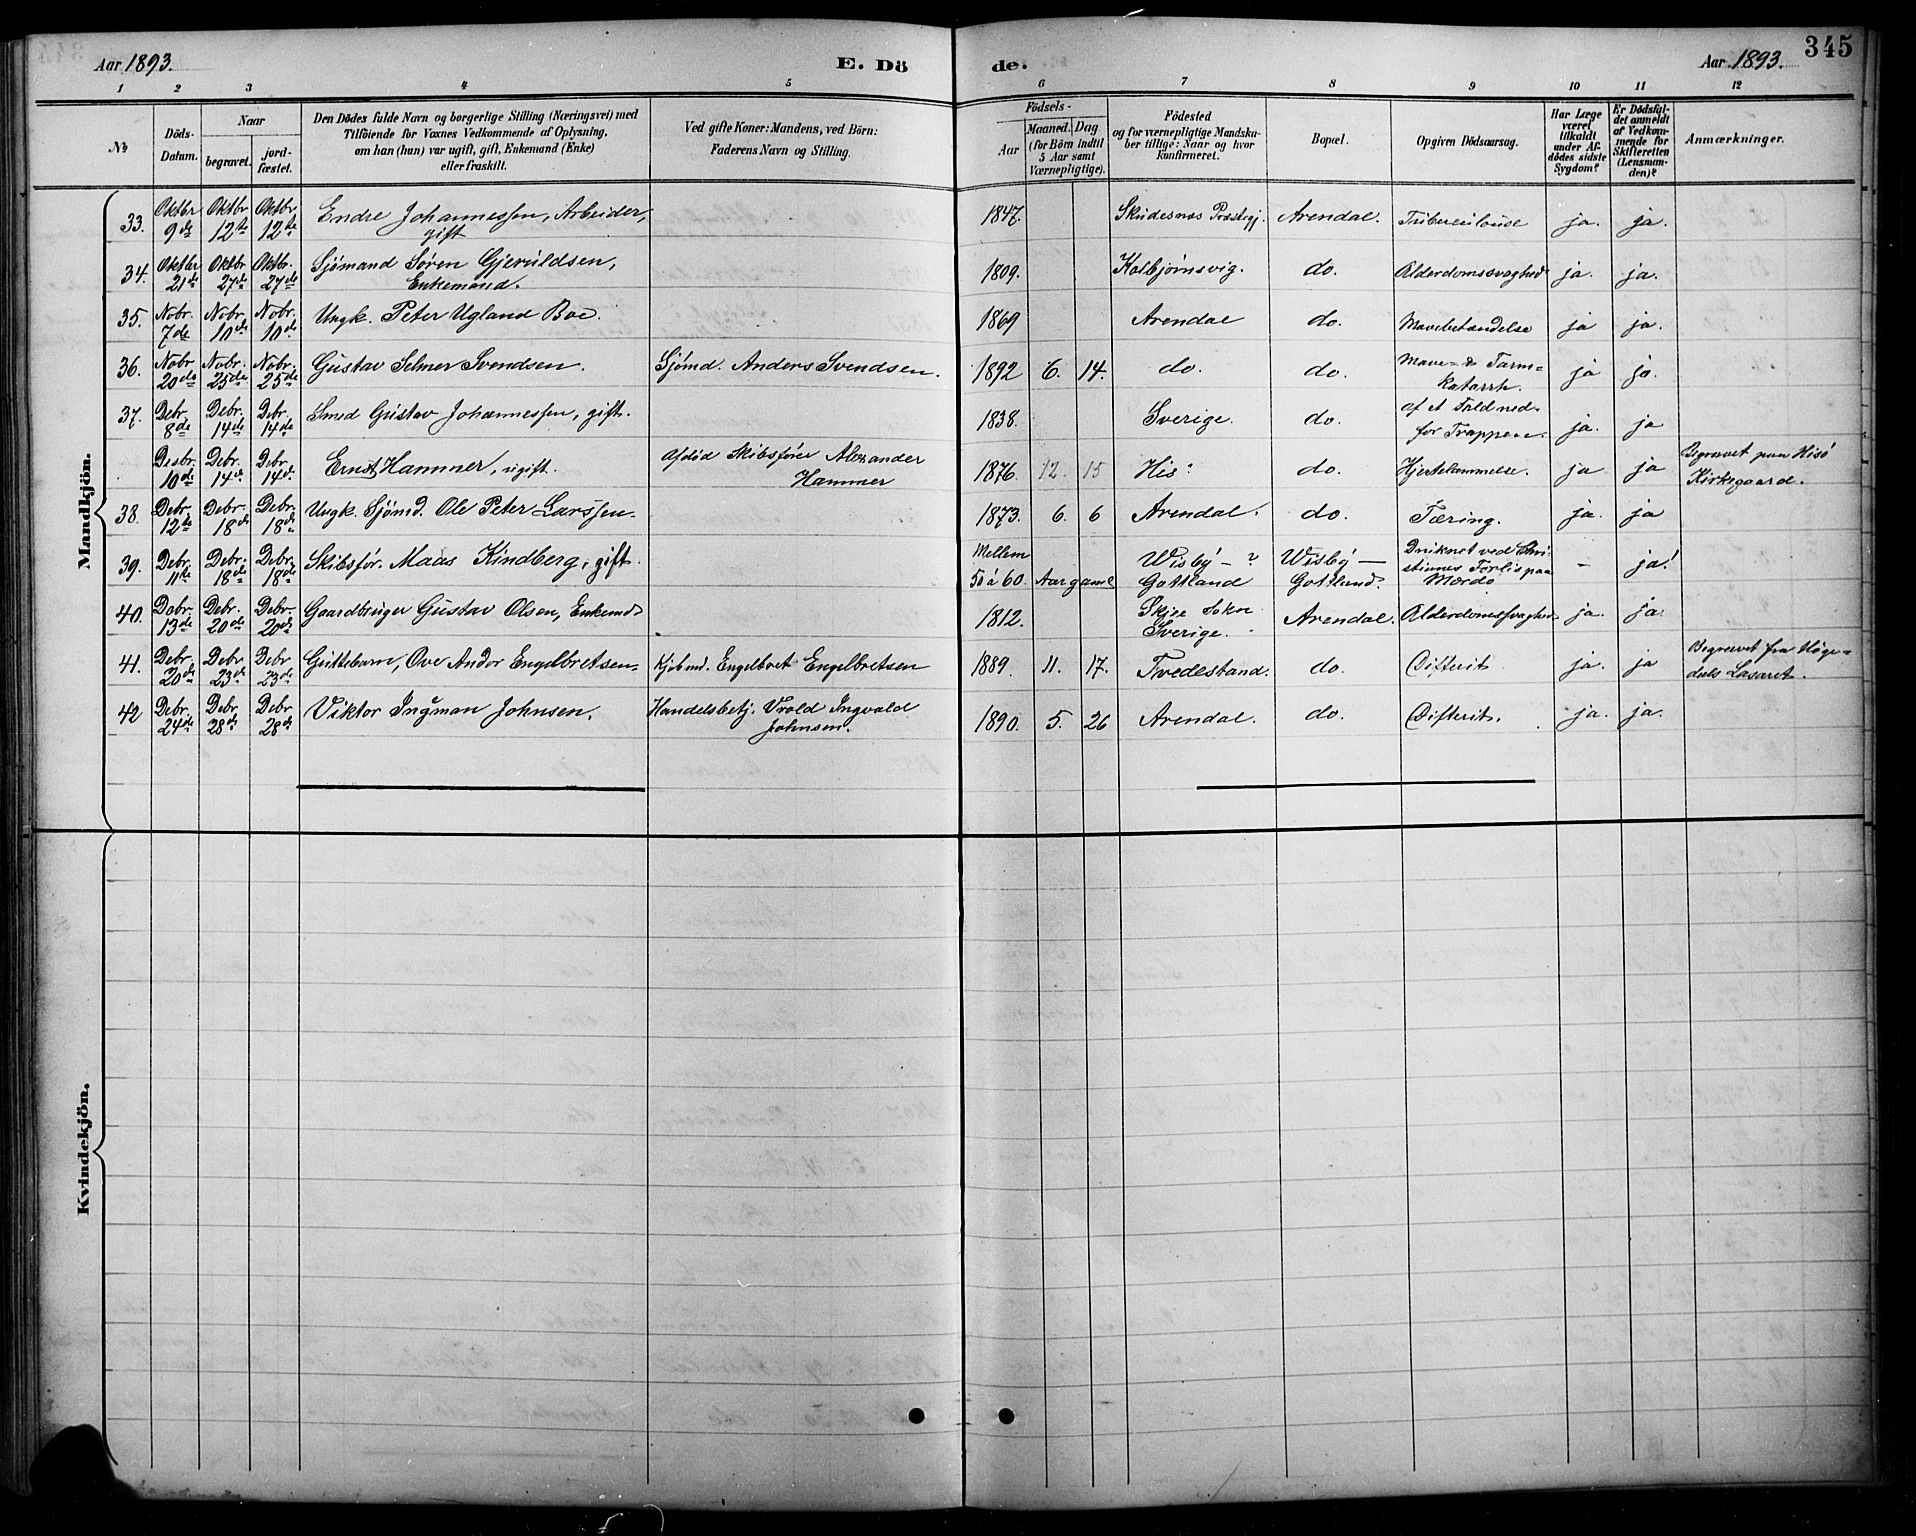 Aar 1893. E. Dö de. Aar 1893. 345
1 2 3 4 5 6 7 8 9 10 11 12
No
Döds-Datum.
Naar
begravet.
jordfæstet.
Den Dödes fulde Navn og borgerlige Stilling (Næringsvei) med
Tilföiende for Voxnes Vedkommende af Oplysning,
om han (hun) var ugift, gift, Enkemand (Enke)
eller fraskilt.
Ved gifte Koner: Mandens, ved Börn:
Faderens Navn og Stilling.
Födsels-
Aar
Maaned. Dag
(for Börn indtil
5 Aar samt
Værnepligtige).
Födested
og for værnepligtige Mandsku-
ber tillige: Naar og hvor
konfirmeret.
Bopæl.
Opgiven Dödsaarsag.
Har Læge
været
tilkaldt
under Af-
dödes sidste
Sygdom?
Er Dödsfal-
det anmeldt
af Vedkom-
mende for
Skifteretten
(Lensman-
den)?
Anmærkninger.
Mandkjön.
33. Oktbr 9de Oktbr 12te Oktbr 12te Endre Johannessen, Arbeider, gift 1847. Skudesnæs Præstegj. Arendal. Tuberculouse ja. ja.
34. Oktbr 21de Oktbr 27de Oktbr. 27de Sjömand Sören Gjeruldsen, Enkemand. 1809. Kolbjørnsvig. do. Alderdomssvaghed ja. ja.
35. Nobr. 7de Nobr. 10de Nobr. 10de Ungk. Peter Ugland Boe. 1869 Arendal do. Mavebetændelse ja ja.
36. Nobr. 20de Nobr. 25de Nobr. 25de Gustav Selmer Svendsen. Sjømd. Anders Svendsen. 1892 6. 14. do. do. Mave- & Tarm=katarrh. ja ja.
37. Debr. 8de Debr. 14de Debr. 14de Smed Gustav Johannessen, gift. 1838. Sverige. do. af et Fald ned-for Trappen. ja. ja
Desbr. 10de Debr. 14d. Debr. 14d. Ernst Hammer, ugift. Afdöd Skibsfører Alexander Hammer 1876. 12. 15 His? do. Hjertelammelse. ja ja Begravet paa Hisö Kirkegaard.
38. Debr. 12te Debr. 18d Debr. 18d. Ungk. Sjömd. Ole Peter Larssen. 1873. 6. 6 Arendal. do. Tæring. ja. ja
39. Debr. 11te Debr. 18de Debr. 18de Skibsfør. Maas Kindberg, gift. Mellem 50 á 60. Aar gamel Wisby - ? Gotland Wisby — Gotland. Druknet ved Chri-stines Forlis paa Mærdö – ja!
40. Debr. 13de Debr. 20de Debr. 20de Gaardbruger Gustav Olsen, Enkemd 1812. Skjee Sokn Sverige. Arendal. Alderdomssvaghed ja. ja.
41. Debr. 20de Debr. 23de Debr 23de Guttebarn, Ove Andor Engelbretsen. Kjöbmd. Engelbret Engelbretsen 1889. 11. 17. Tvedestand. do. Difterit. ja. ja Begravet fra Höge-dals Lasaret.
42 Debr. 24de Debr. 28d Debr 28de Viktor Ingman Johnsen. Handelsbetj. Vrold Ingvald Johnsen. 1890. 5. 26 Arendal. do. Difterit. ja. ja.
Kvindekjön.